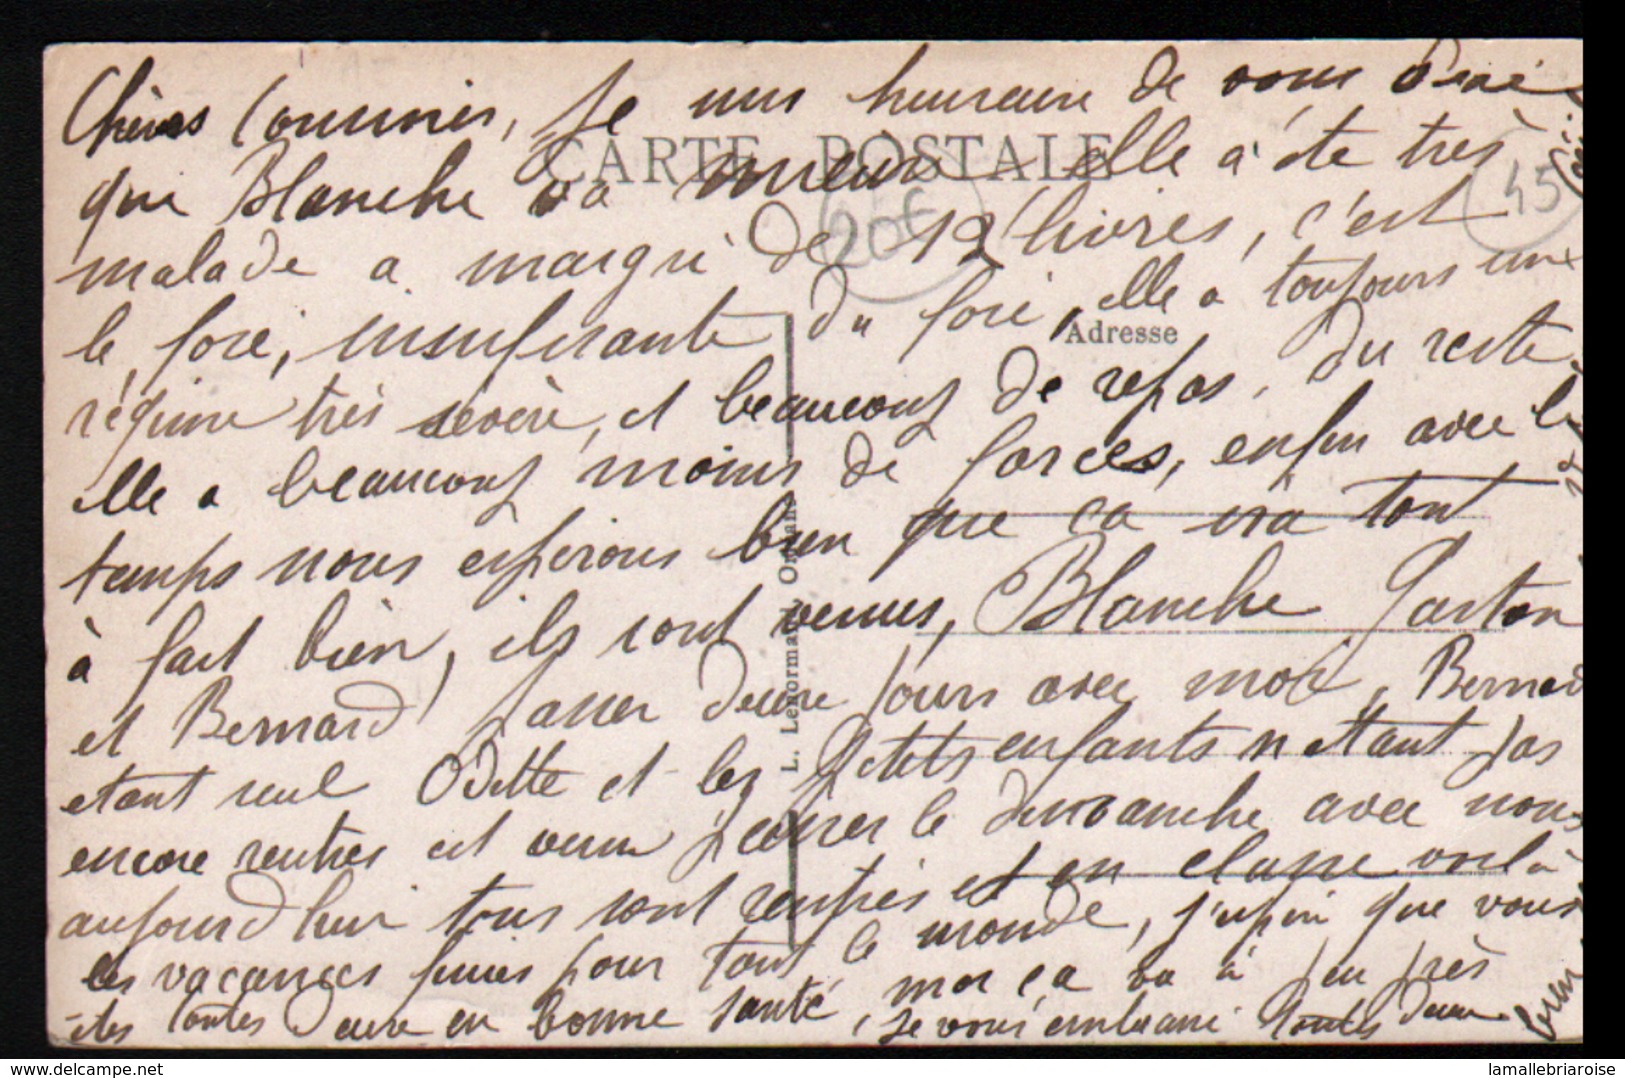 Chères Cousines, Je suis heureuse de vous dire
que Blanche va mieux elle a été très
malade a maigri de 12 livres, c'est
le foie, insufisante du foie, elle a toujours un
régime très sévère, et beaucoup de repos, du reste
elle a beaucoup moins de forces, enfin avec le
temps nous espérons bien que ca ira tout
à fait bien, ils sont venus, Blanche Gaston
et Bernard passer deux jours avec moi, Bernard
etant seul Odette et les petits enfants n'etant pas
encore rentres est venu passer le dimanche avec nous
aujourd'hui tous sont rentrés et en classe voilà
les vacances finies pour tout le monde, j'espère que vous
êtes toutes deux en bonne santé, moi ça va à peu près
bien
je vous embrasse toutes deux
CARTE POSTALE
Adresse
L. Lenormand, Orléans
20€
45
delcampe.net
lamallebriaroise